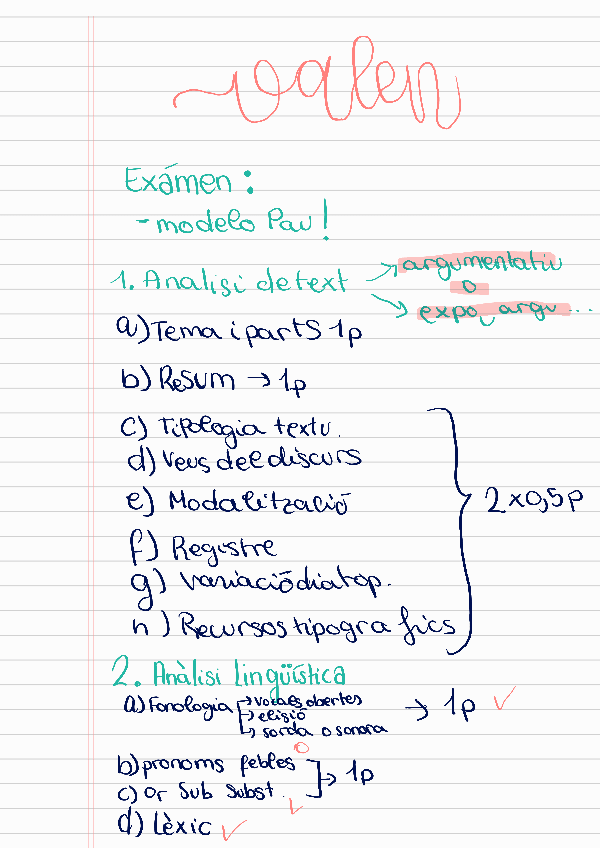 valen
Exámen:
- modelo Pau!
1. Analisi de text → argumentatiu
o
→ expo argu...
a) Tema i parts 1p
b) Resum → 1p
c) Tipologia textu.
d) Veus del discurs
e) Modalització
f) Registre
g) Variació diatop.
h) Recursos tipogràfics
2 x 0,5 p
2. Anàlisi lingüística
a) Fonologia → vocals obertes
→ elisió
→ sorda o sonora
→ 1p ✓
b) pronoms febles
c) Or Sub Subst.
→ 1p
d) Lèxic ✓